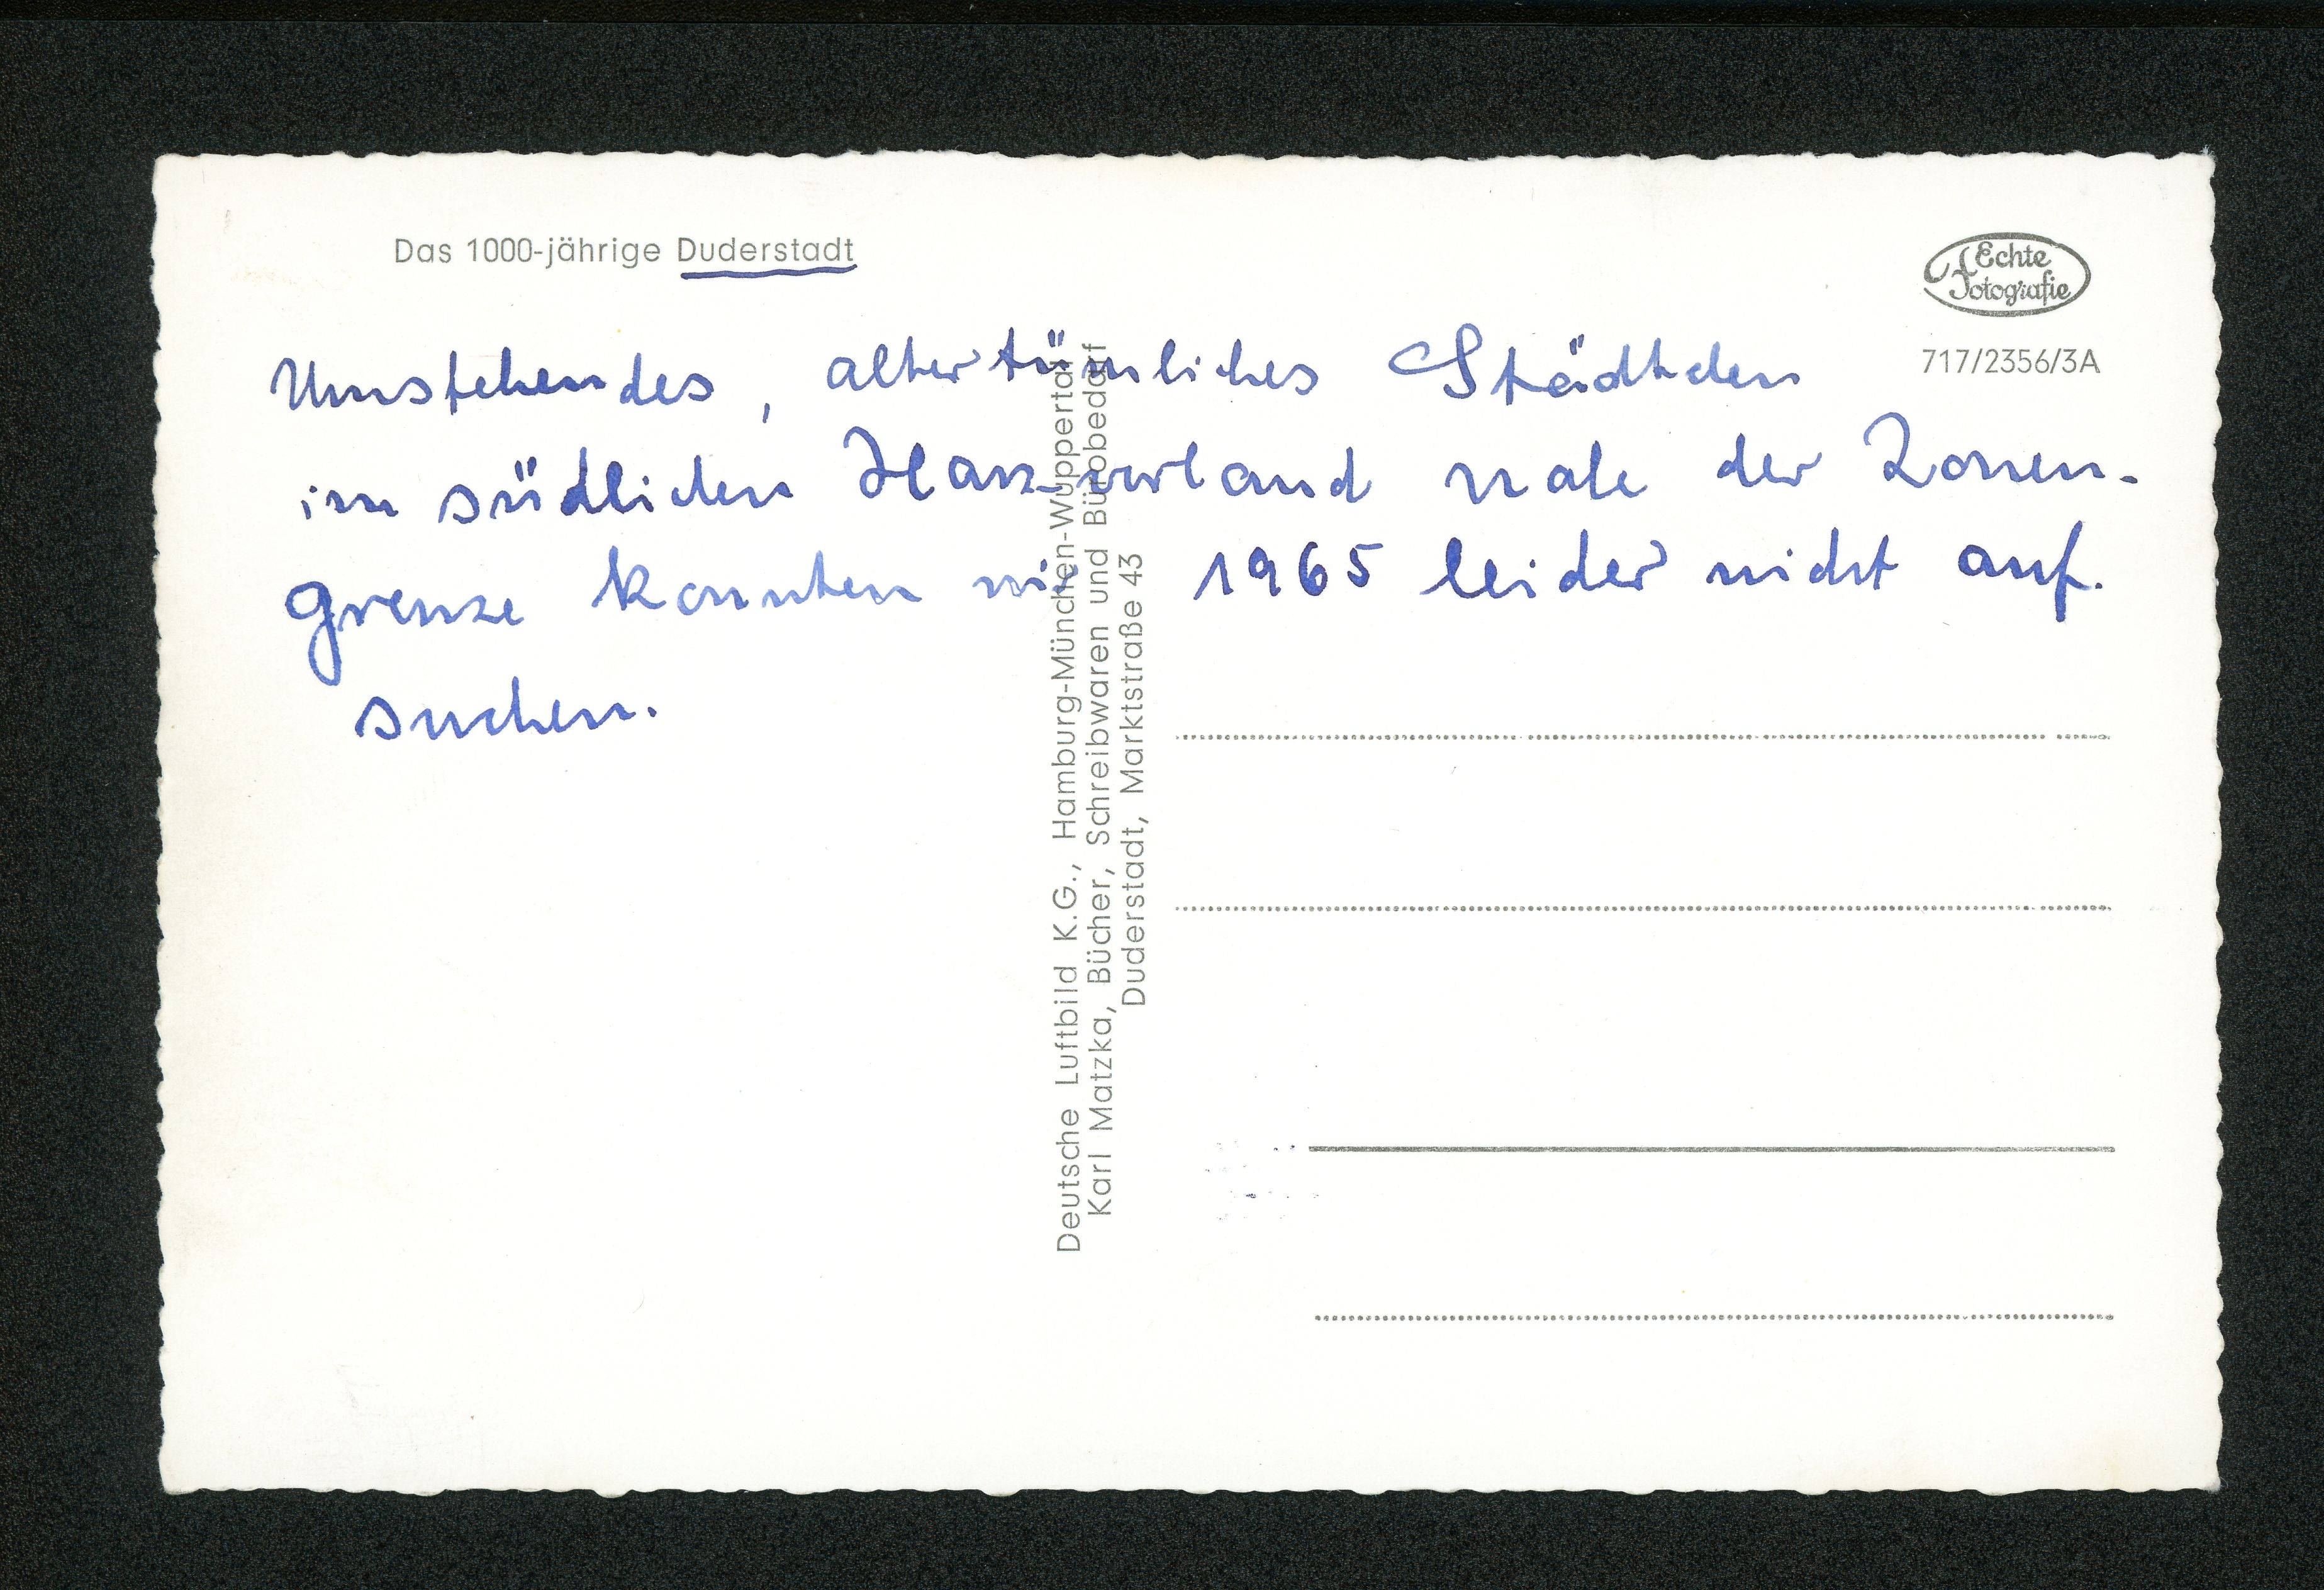 Das 1000-jährige Duderstadt
Echte
Fotografie
717/2356/3A
Umstehendes, altertümliches Städtchen
im südlichen Harzvorland nahe der Zonen-
grenze konnten wir 1965 leider nicht auf-
suchen.
Deutsche Luftbild K.G., Hamburg-München-Wuppertal
Karl Matzka, Bücher, Schreibwaren und Bürobedarf
Duderstadt, Marktstraße 43